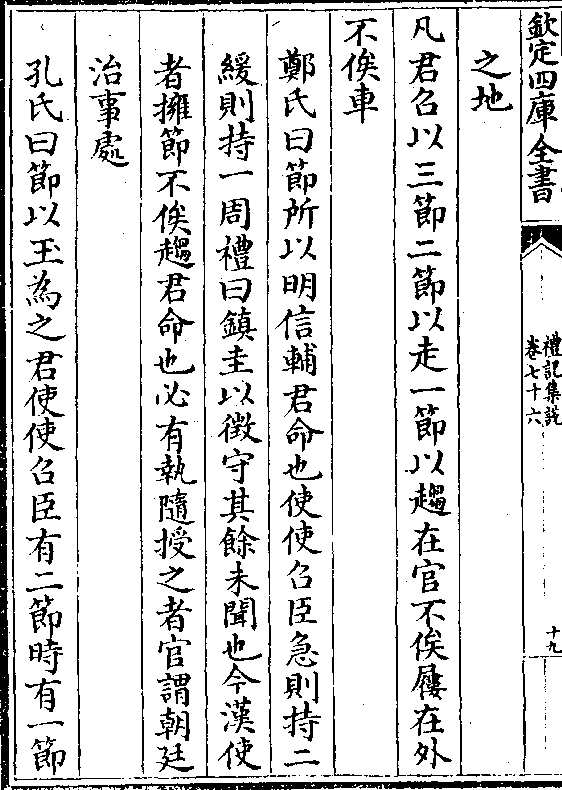 欽定四庫全書
禮記集説
卷七十六
十九
之地
凡君召以三節二節以走一節以趨在官不俟屨在外
不俟車
鄭氏曰節所以明信輔君命也使使召臣急則持二
緩則持一周禮曰鎮圭以徴守其餘未聞也今漢使
者擁節不俟趨君命也必有執隨授之者官謂朝廷
治事處
孔氏曰節以玉為之君使使召臣有二節時有一節